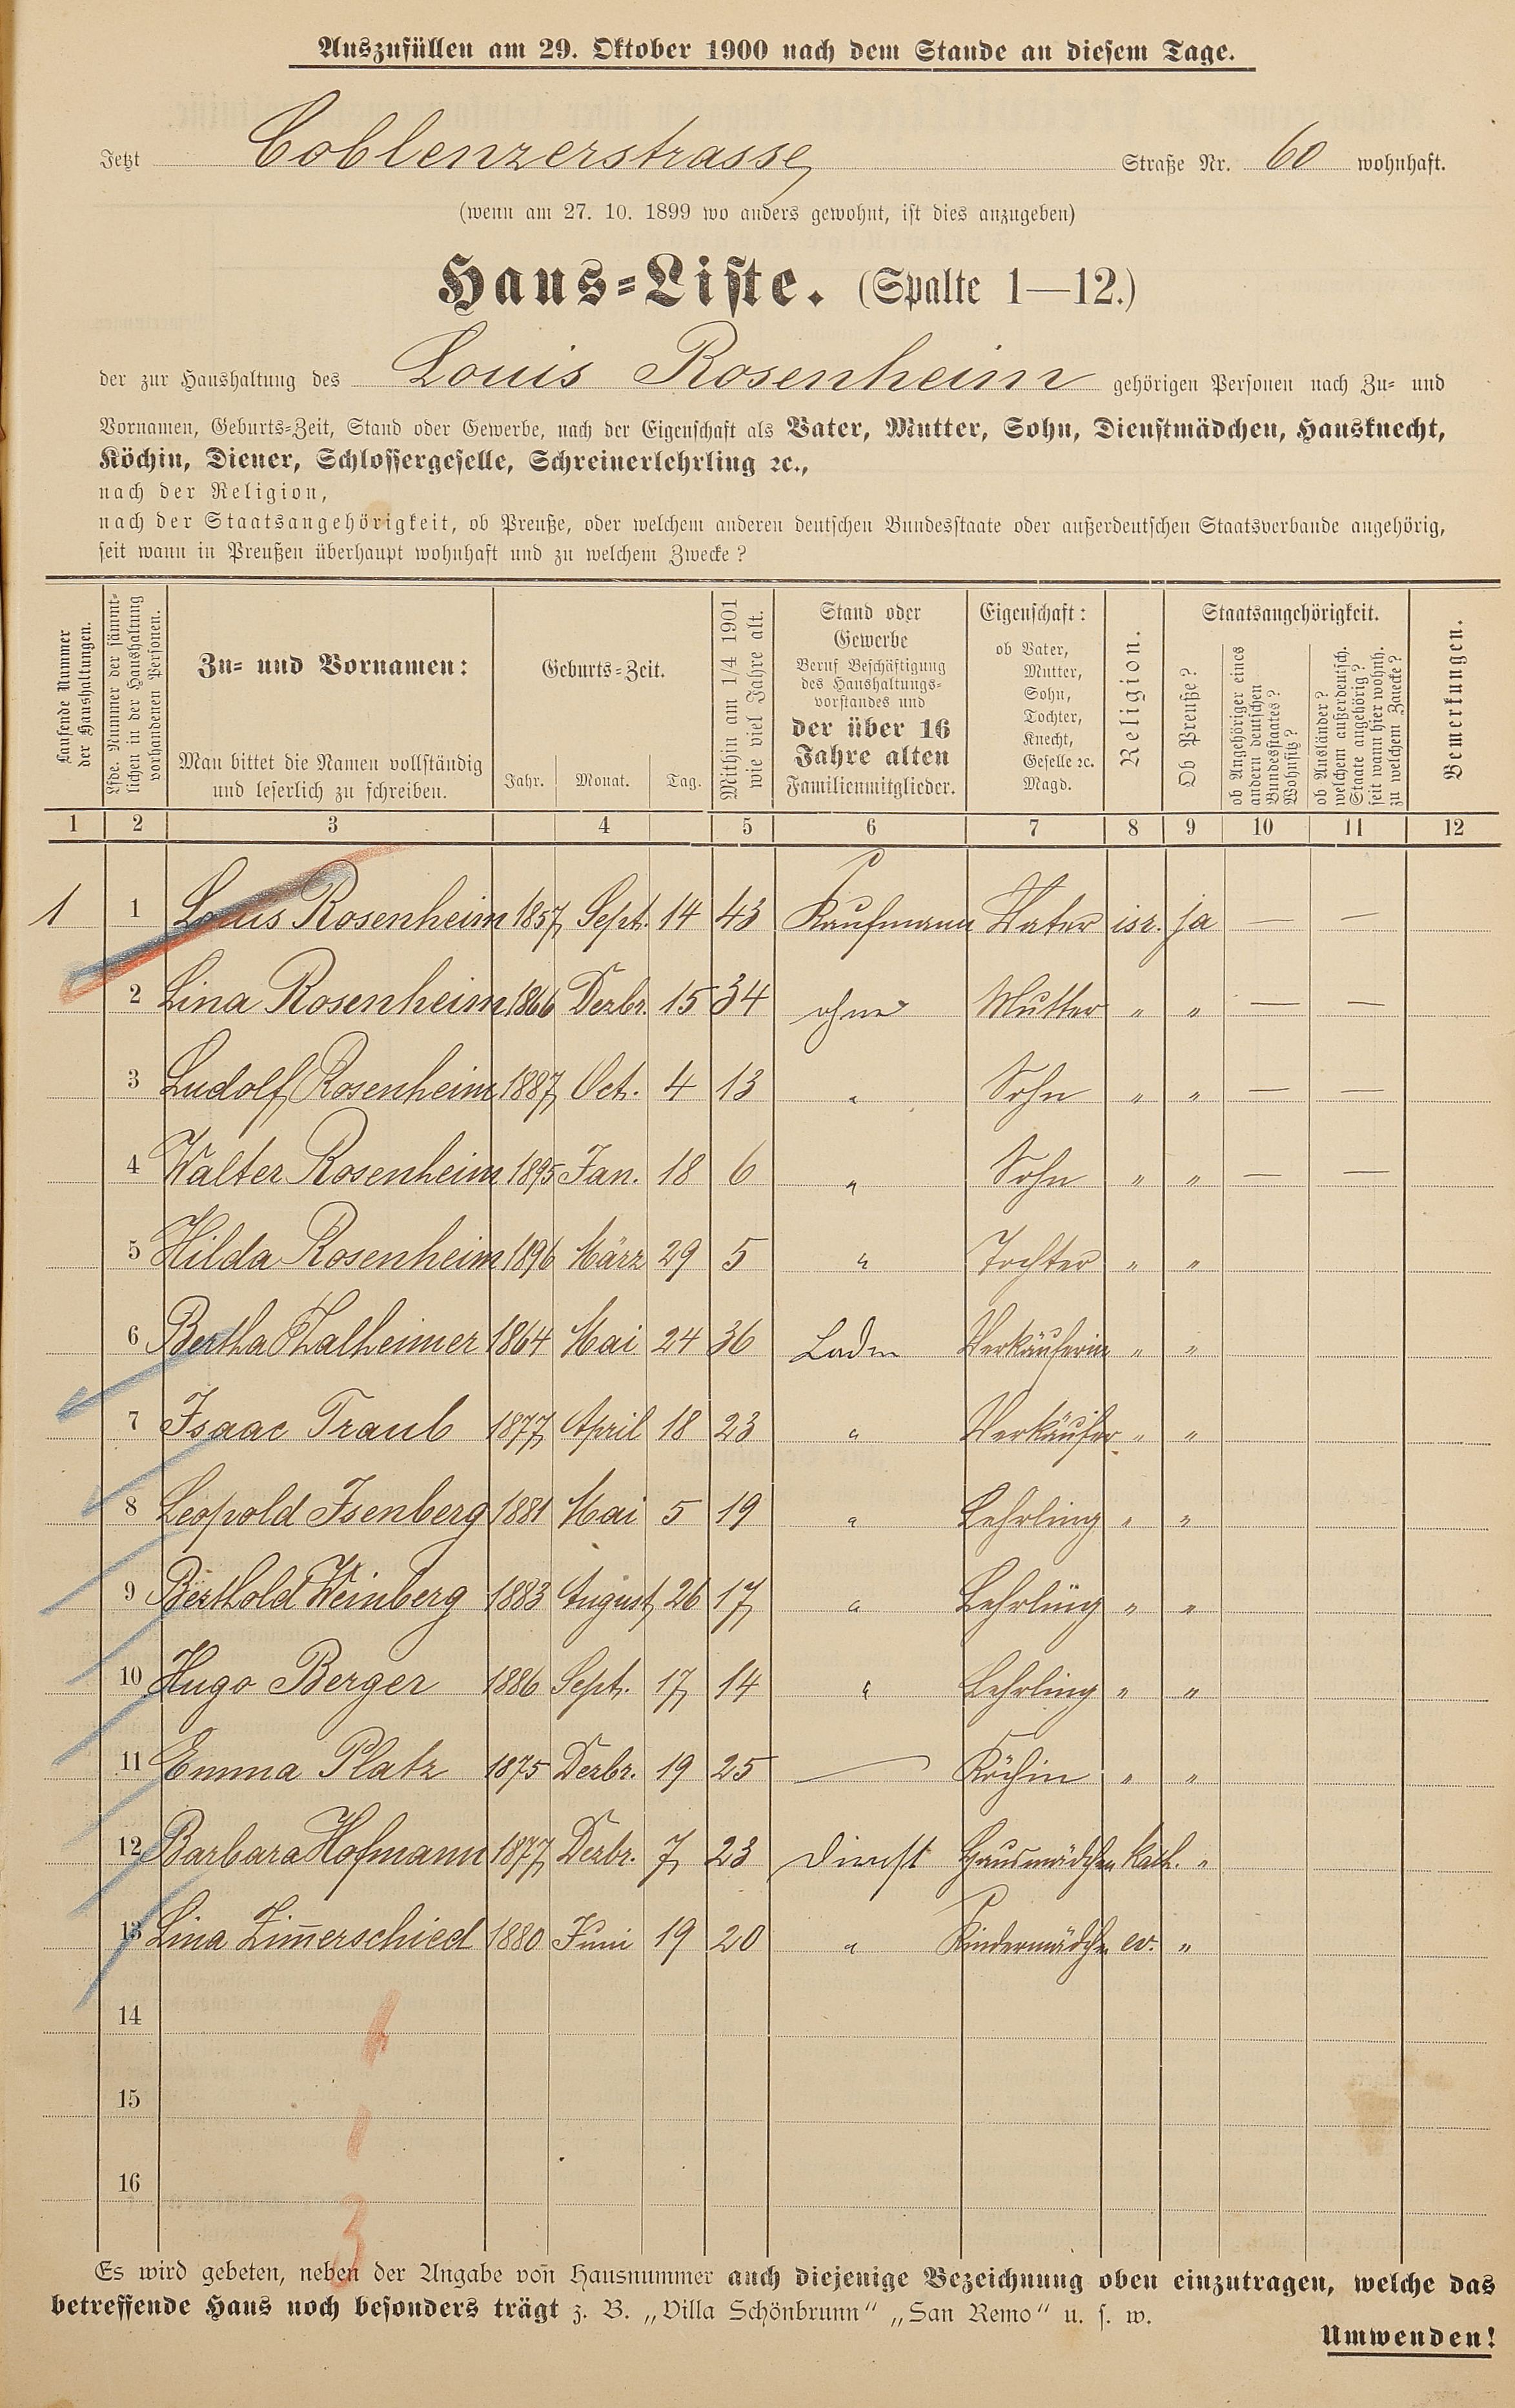 Auszufüllen am 29. Oktober 1900 nach dem Stande an diesem Tage.
Jetzt Coblenzerstrasse Straße Nr. 60 wohnhaft.
(wenn am 27. 10. 1899 wo anders gewohnt, ist dies anzugeben)
Haus-Liste. (Spalte 1—12.)
der zur Haushaltung des Louis Rosenheim gehörigen Personen nach Zu- und
Vornamen, Geburts-Zeit, Stand oder Gewerbe, nach der Eigenschaft als Vater, Mutter, Sohn, Dienstmädchen, Hausknecht,
Köchin, Diener, Schlossergeselle, Schreinerlehrling ꝛc.,
nach der Religion,
nach der Staatsangehörigkeit, ob Preuße, oder welchem anderen deutschen Bundesstaate oder außerdeutschen Staatsverbande angehörig,
seit wann in Preußen überhaupt wohnhaft und zu welchem Zwecke?
Laufende Nummer
der Haushaltungen.
Lfde. Nummer der sämmt-
lichen in der Haushaltung
vorhandenen Personen.
Zu- und Vornamen:
Man bittet die Namen vollständig
und leserlich zu schreiben.
Geburts-Zeit.
Jahr. Monat. Tag.
Mithin am 1/4 1901
wie viel Jahre alt.
Stand oder
Gewerbe
Beruf Beschäftigung
des Haushaltungs-
vorstandes und
der über 16
Jahre alten
Familienmitglieder.
Eigenschaft:
ob Vater,
Mutter,
Sohn,
Tochter,
Knecht,
Geselle ꝛc.
Magd.
Religion.
Staatsangehörigkeit.
Ob Preuße?
ob Angehöriger eines
andern deutschen
Bundesstaates?
Wohnsitz?
ob Ausländer?
welchem außerdeutsch.
Staate angehörig?
seit wann hier wohnh.
zu welchem Zwecke?
Bemerkungen.
1 2 3 4 5 6 7 8 9 10 11 12
1 1 Louis Rosenheim 1857 Sept. 14 43 Kaufmann Vater isr. ja — —
2 Lina Rosenheim 1866 Dezbr. 15 34 ohne Mutter " " — —
3 Ludolf Rosenheim 1887 Oct. 4 13 " Sohn " " — —
4 Walter Rosenheim 1895 Jan. 18 6 " Sohn " " — —
5 Hilda Rosenheim 1896 März 29 5 " Tochter " "
6 Bertha Thalheimer 1864 Mai 24 36 Laden Verkäuferin " "
7 Isaac Traub 1877 April 18 23 " Verkäufer " "
8 Leopold Isenberg 1881 Mai 5 19 " Lehrling " "
9 Berthold Weinberg 1883 August 26 17 " Lehrling " "
10 Hugo Berger 1886 Sept. 17 14 " Lehrling " "
11 Emma Platz 1875 Dezbr. 19 25 — Köchin " "
12 Barbara Hofmann 1877 Dezbr. 7 23 Dienst Hausmädchen kath. "
13 Lina Zim̅erschied 1880 Juni 19 20 " Kindermädchen ev. "
14
15
16
3
Es wird gebeten, neben der Angabe von̄ Hausnummer auch diejenige Bezeichnung oben einzutragen, welche das
betreffende Haus noch besonders trägt z. B. „Villa Schönbrunn“ „San Remo“ u. s. w.
Umwenden!